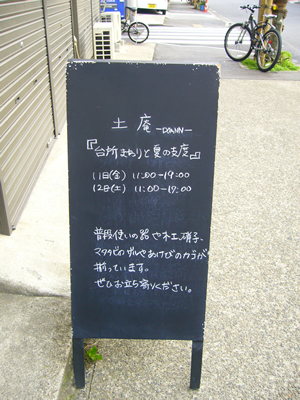 土庵 -DOANN-
『台所まわりと夏の支度』
11日(金) 11:00-19:00
12日(土) 11:00-19:00
普段使いの器や木工、硝子、
マタタビのザルやあけびのカゴが
揃っています。
ぜひお立ち寄りください。